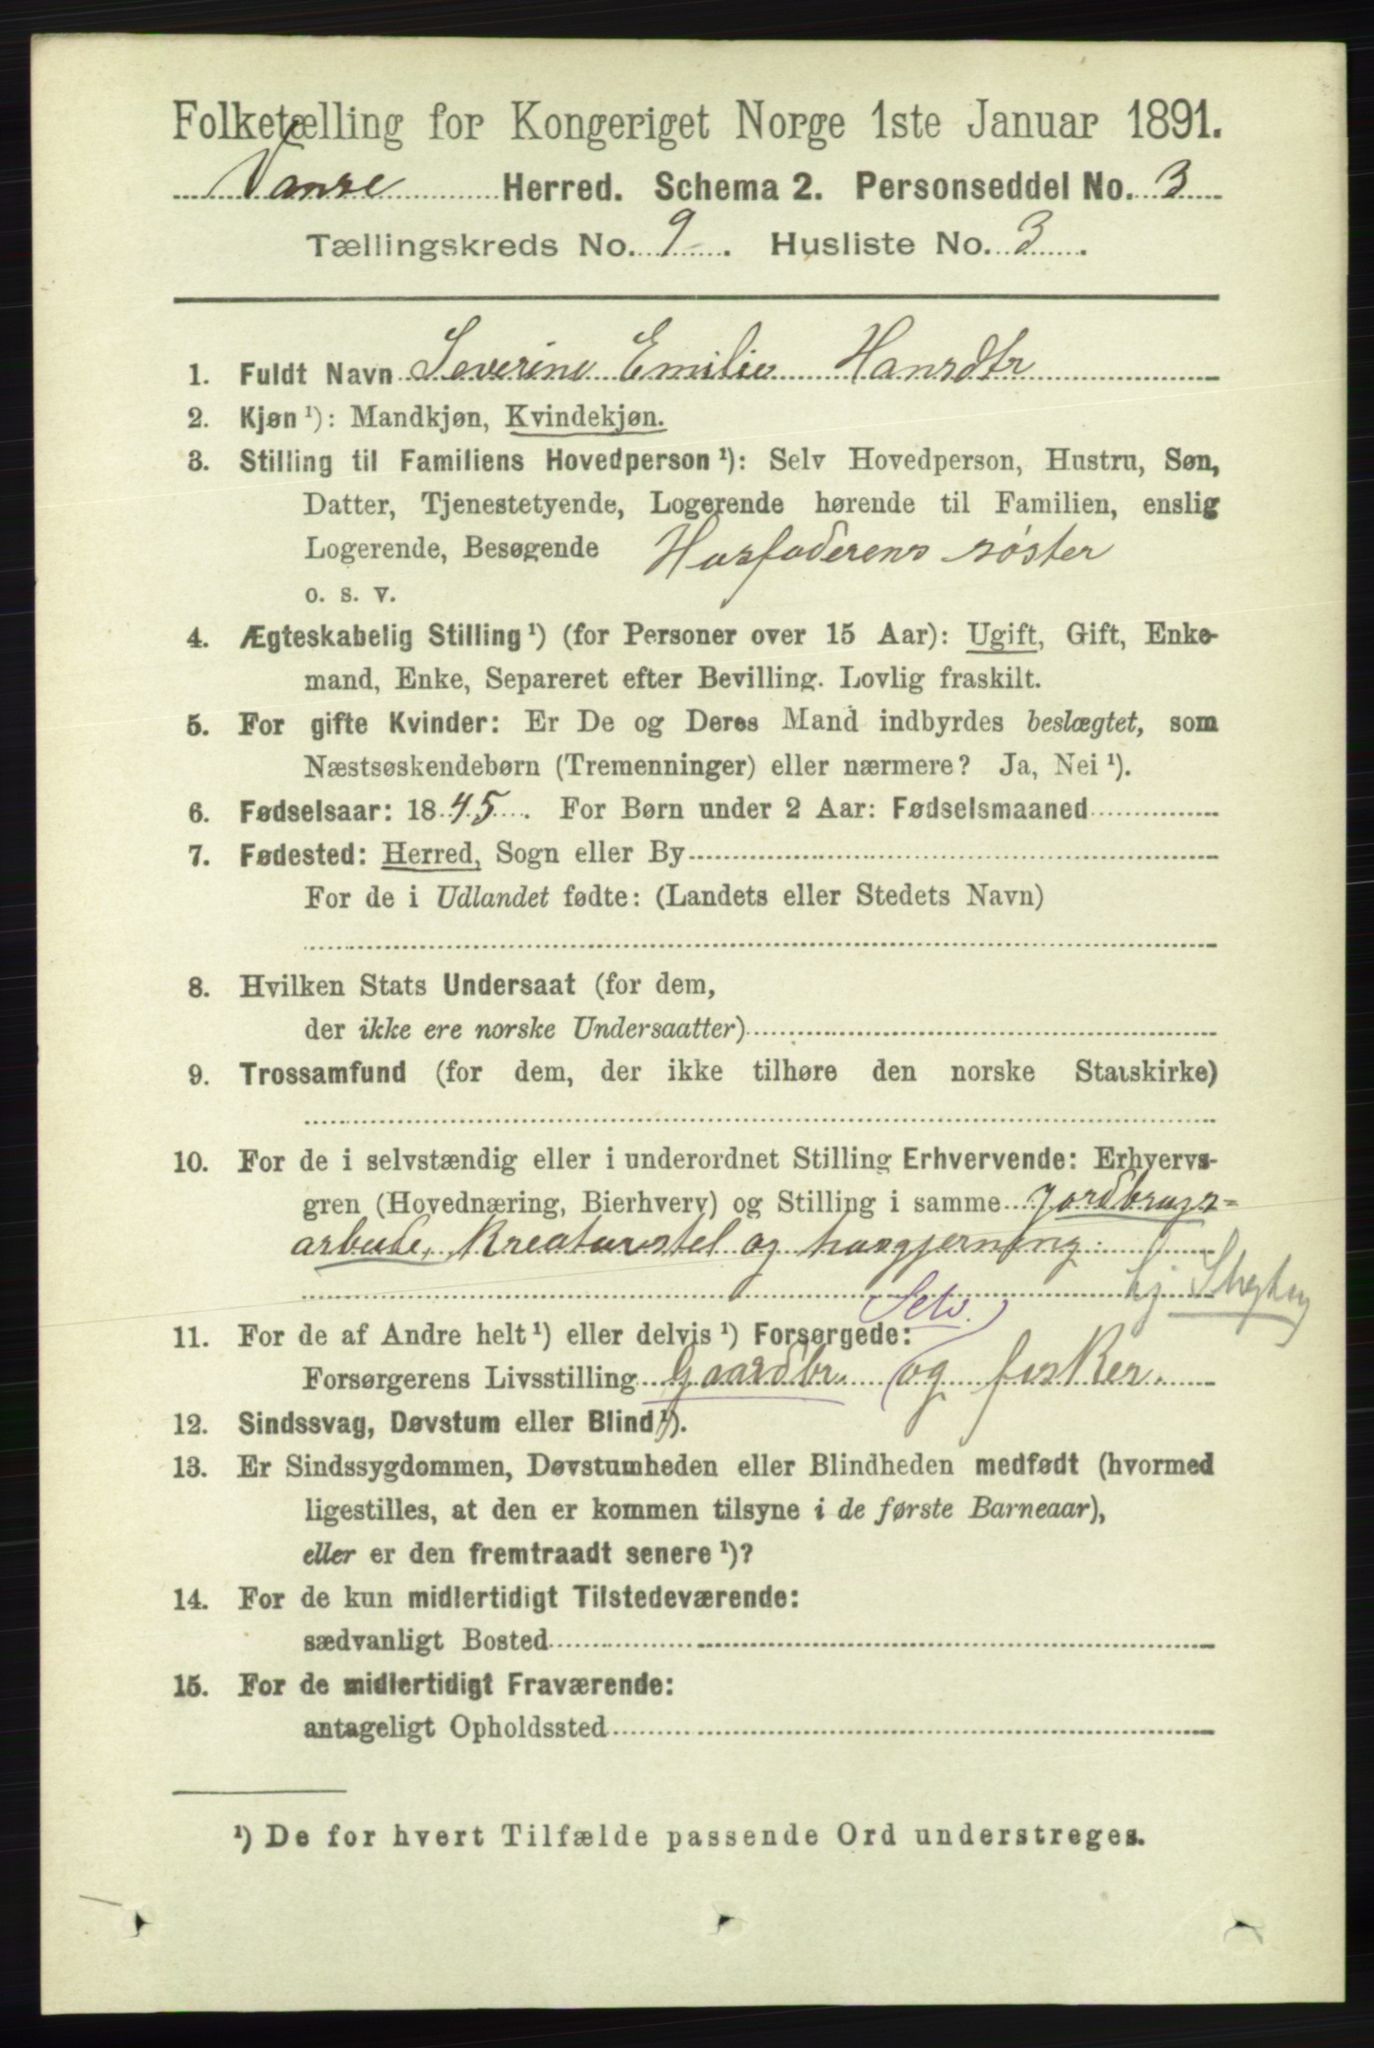 Folketælling for Kongeriget Norge 1ste Januar 1891.
Vanse Herred. Schema 2. Personseddel No. 3
Tællingskreds No. 9. Husliste No. 3.
1. Fuldt Navn Severine Emilie Hansdtr
2. Kjøn ¹): Mandkjøn, Kvindekjøn.
3. Stilling til Familiens Hovedperson ¹): Selv Hovedperson, Hustru, Søn,
Datter, Tjenestetyende, Logerende hørende til Familien, enslig
Logerende, Besøgende Husfaderens søster
o. s. v.
4. Ægteskabelig Stilling ¹) (for Personer over 15 Aar): Ugift, Gift, Enke-
mand, Enke, Separeret efter Bevilling. Lovlig fraskilt.
5. For gifte Kvinder: Er De og Deres Mand indbyrdes beslægtet, som
Næstsøskendebørn (Tremenninger) eller nærmere? Ja, Nei ¹).
6. Fødselsaar: 1845. For Børn under 2 Aar: Fødselsmaaned
7. Fødested: Herred, Sogn eller By
For de i Udlandet fødte: (Landets eller Stedets Navn)
8. Hvilken Stats Undersaat (for dem,
der ikke ere norske Undersaatter)
9. Trossamfund (for dem, der ikke tilhøre den norske Statskirke)
10. For de i selvstændig eller i underordnet Stilling Erhvervende: Erhvervs-
gren (Hovednæring, Bierhverv) og Stilling i samme Jordbrugs-
arbeide, Kreaturstel og husgjerning.
Selv.
11. For de af Andre helt ¹) eller delvis ¹) Forsørgede:
Forsørgerens Livsstilling Gaardbr. og fisker.
12. Sindssvag, Døvstum eller Blind ¹).
13. Er Sindssygdommen, Døvstumheden eller Blindheden medfødt (hvormed
ligestilles, at den er kommen tilsyne i de første Barneaar),
eller er den fremtraadt senere ¹)?
14. For de kun midlertidigt Tilstedeværende:
sædvanligt Bosted
15. For de midlertidigt Fraværende:
antageligt Opholdssted
¹) De for hvert Tilfælde passende Ord understreges.